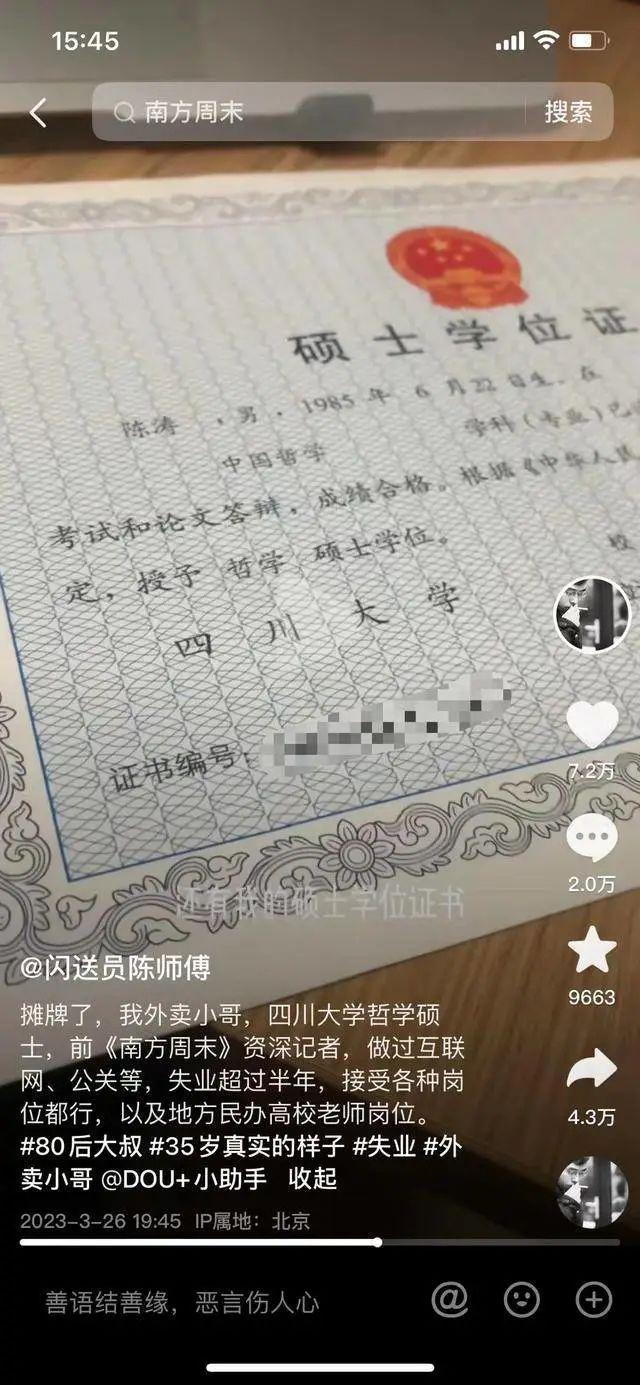 15:45
南方周末
搜索
硕士学位证
陈涛，男，1985年6月22日生。在
中国哲学 学科（专业）已
考试和论文答辩，成绩合格。根据《中华人民
定，授予 哲学 硕士学位。
校
四川大学
证书编号：
7.2万
2.0万
还有我的硕士学位证书
@闪送员陈师傅
9663
摊牌了，我外卖小哥，四川大学哲学硕
士，前《南方周末》资深记者，做过互联
网、公关等，失业超过半年，接受各种岗
位都行，以及地方民办高校老师岗位。
4.3万
#80后大叔 #35岁真实的样子 #失业 #外
卖小哥 @DOU+小助手 收起
2023-3-26 19:45 IP属地：北京
善语结善缘，恶言伤人心